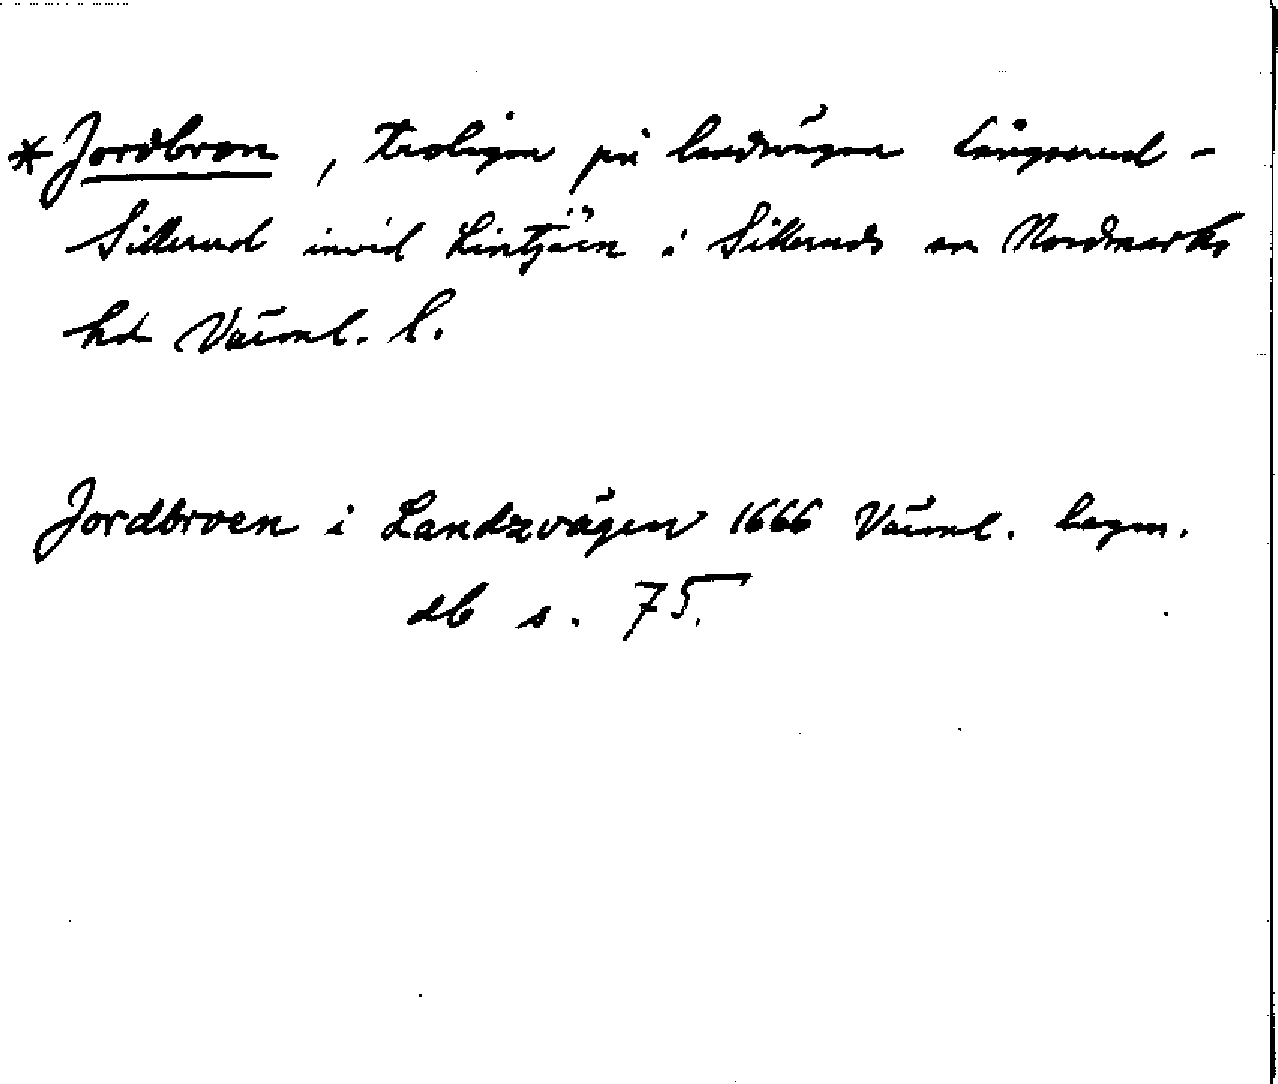 *Jordbron, troligen på landsvägen Långserud -
Sillerud invid Lintjärn i Silleruds sn Nordmarks
hd Värml. l.
Jordbroen i Landzvägen 1666 Värml. lagm.
db s. 75.